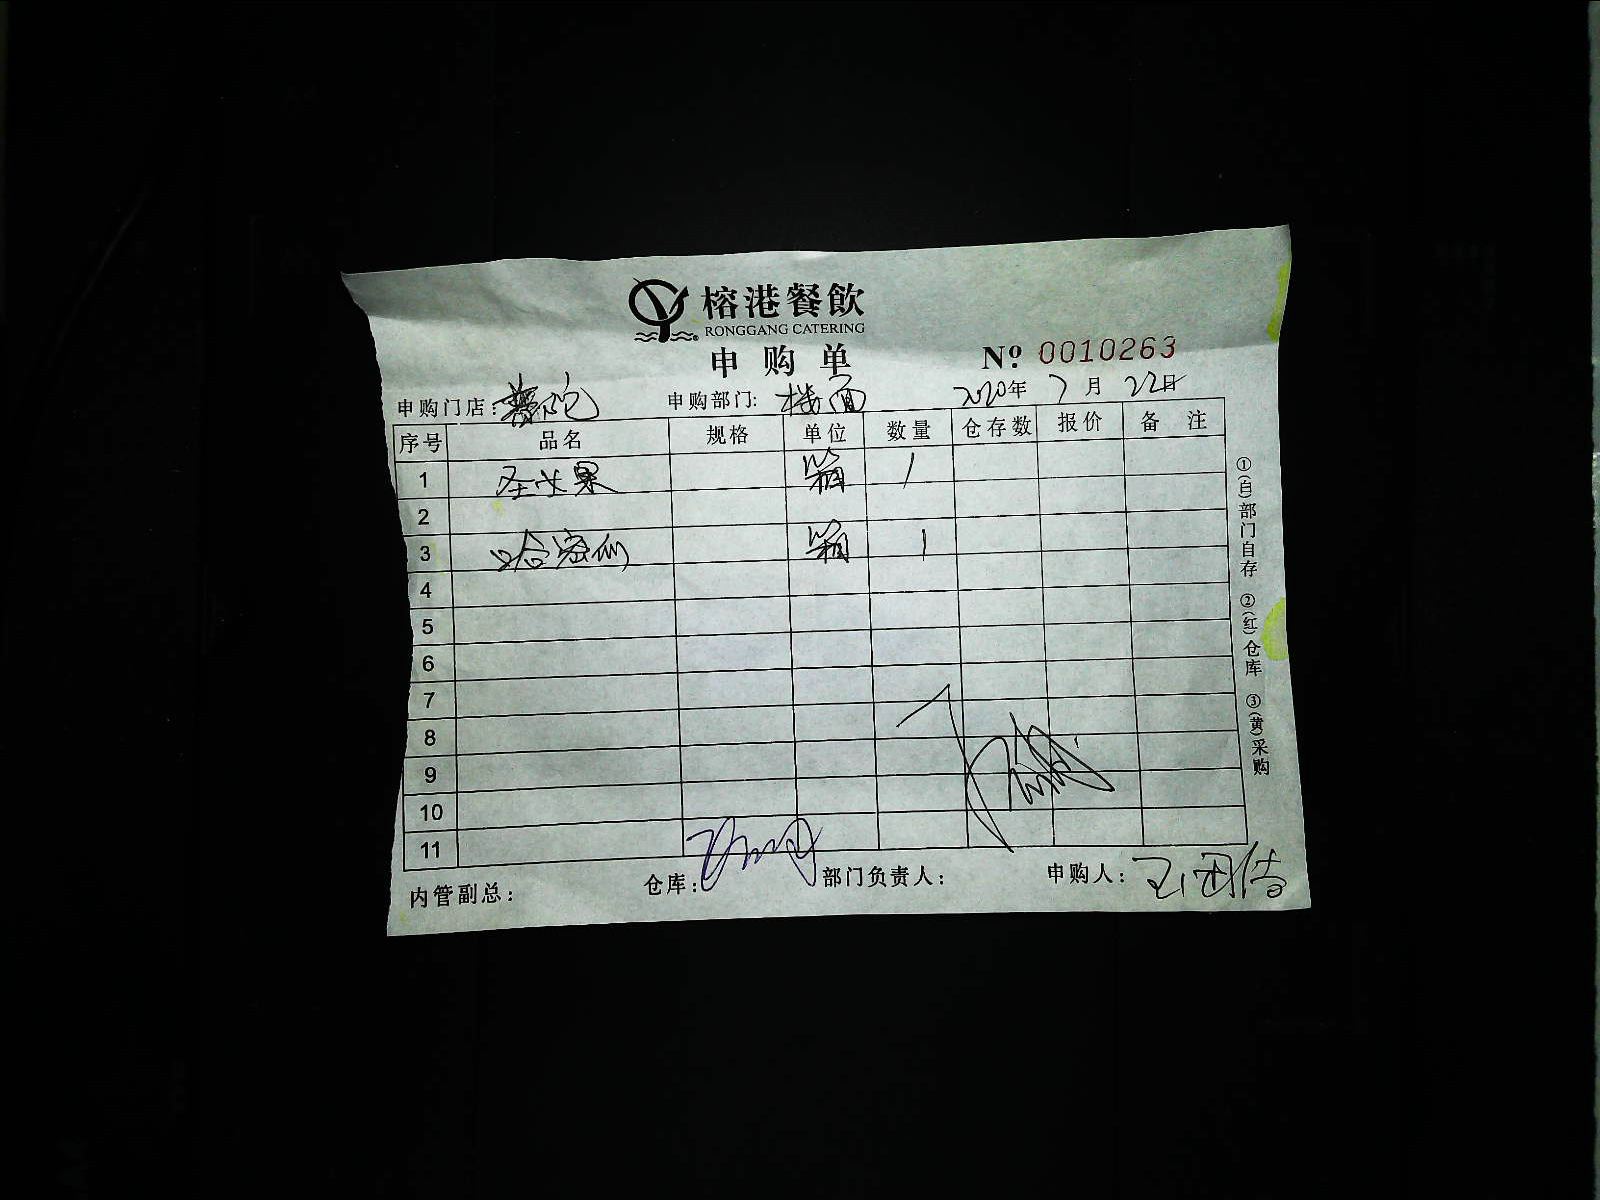 榕港餐飲
RONGGANG CATERING
申购单
Nº 0010263
申购门店: 申购部门: 楼面 2020年 7月 22日
序号 品名 规格 单位 数量 仓存数 报价 备注
1 圣女果 箱 1
2
3 哈密瓜 箱 1
4
5
6
7
8
9
10
11
内管副总: 仓库: 部门负责人: 申购人:
①(白)部门自存 ②(红)仓库 ③(黄)采购